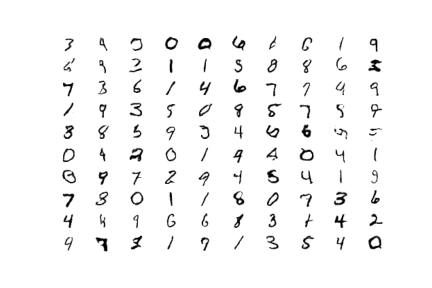 3 9 5 0 0 6 6 1 9
9 2 1 1 5 8 8 6
7 3 6 1 4 6 7 7 9 9
1 9 3 5 0 8 5 7 9
3 8 5 9 3 4 6 6
0 4 2 0 1 9 4 0 4 1
9 7 2 9 4 5 4 1 9
7 8 0 1 1 8 0 7 3 6
4 9 6 6 8 3 4 2
9 7 1 7 1 3 5 4 0